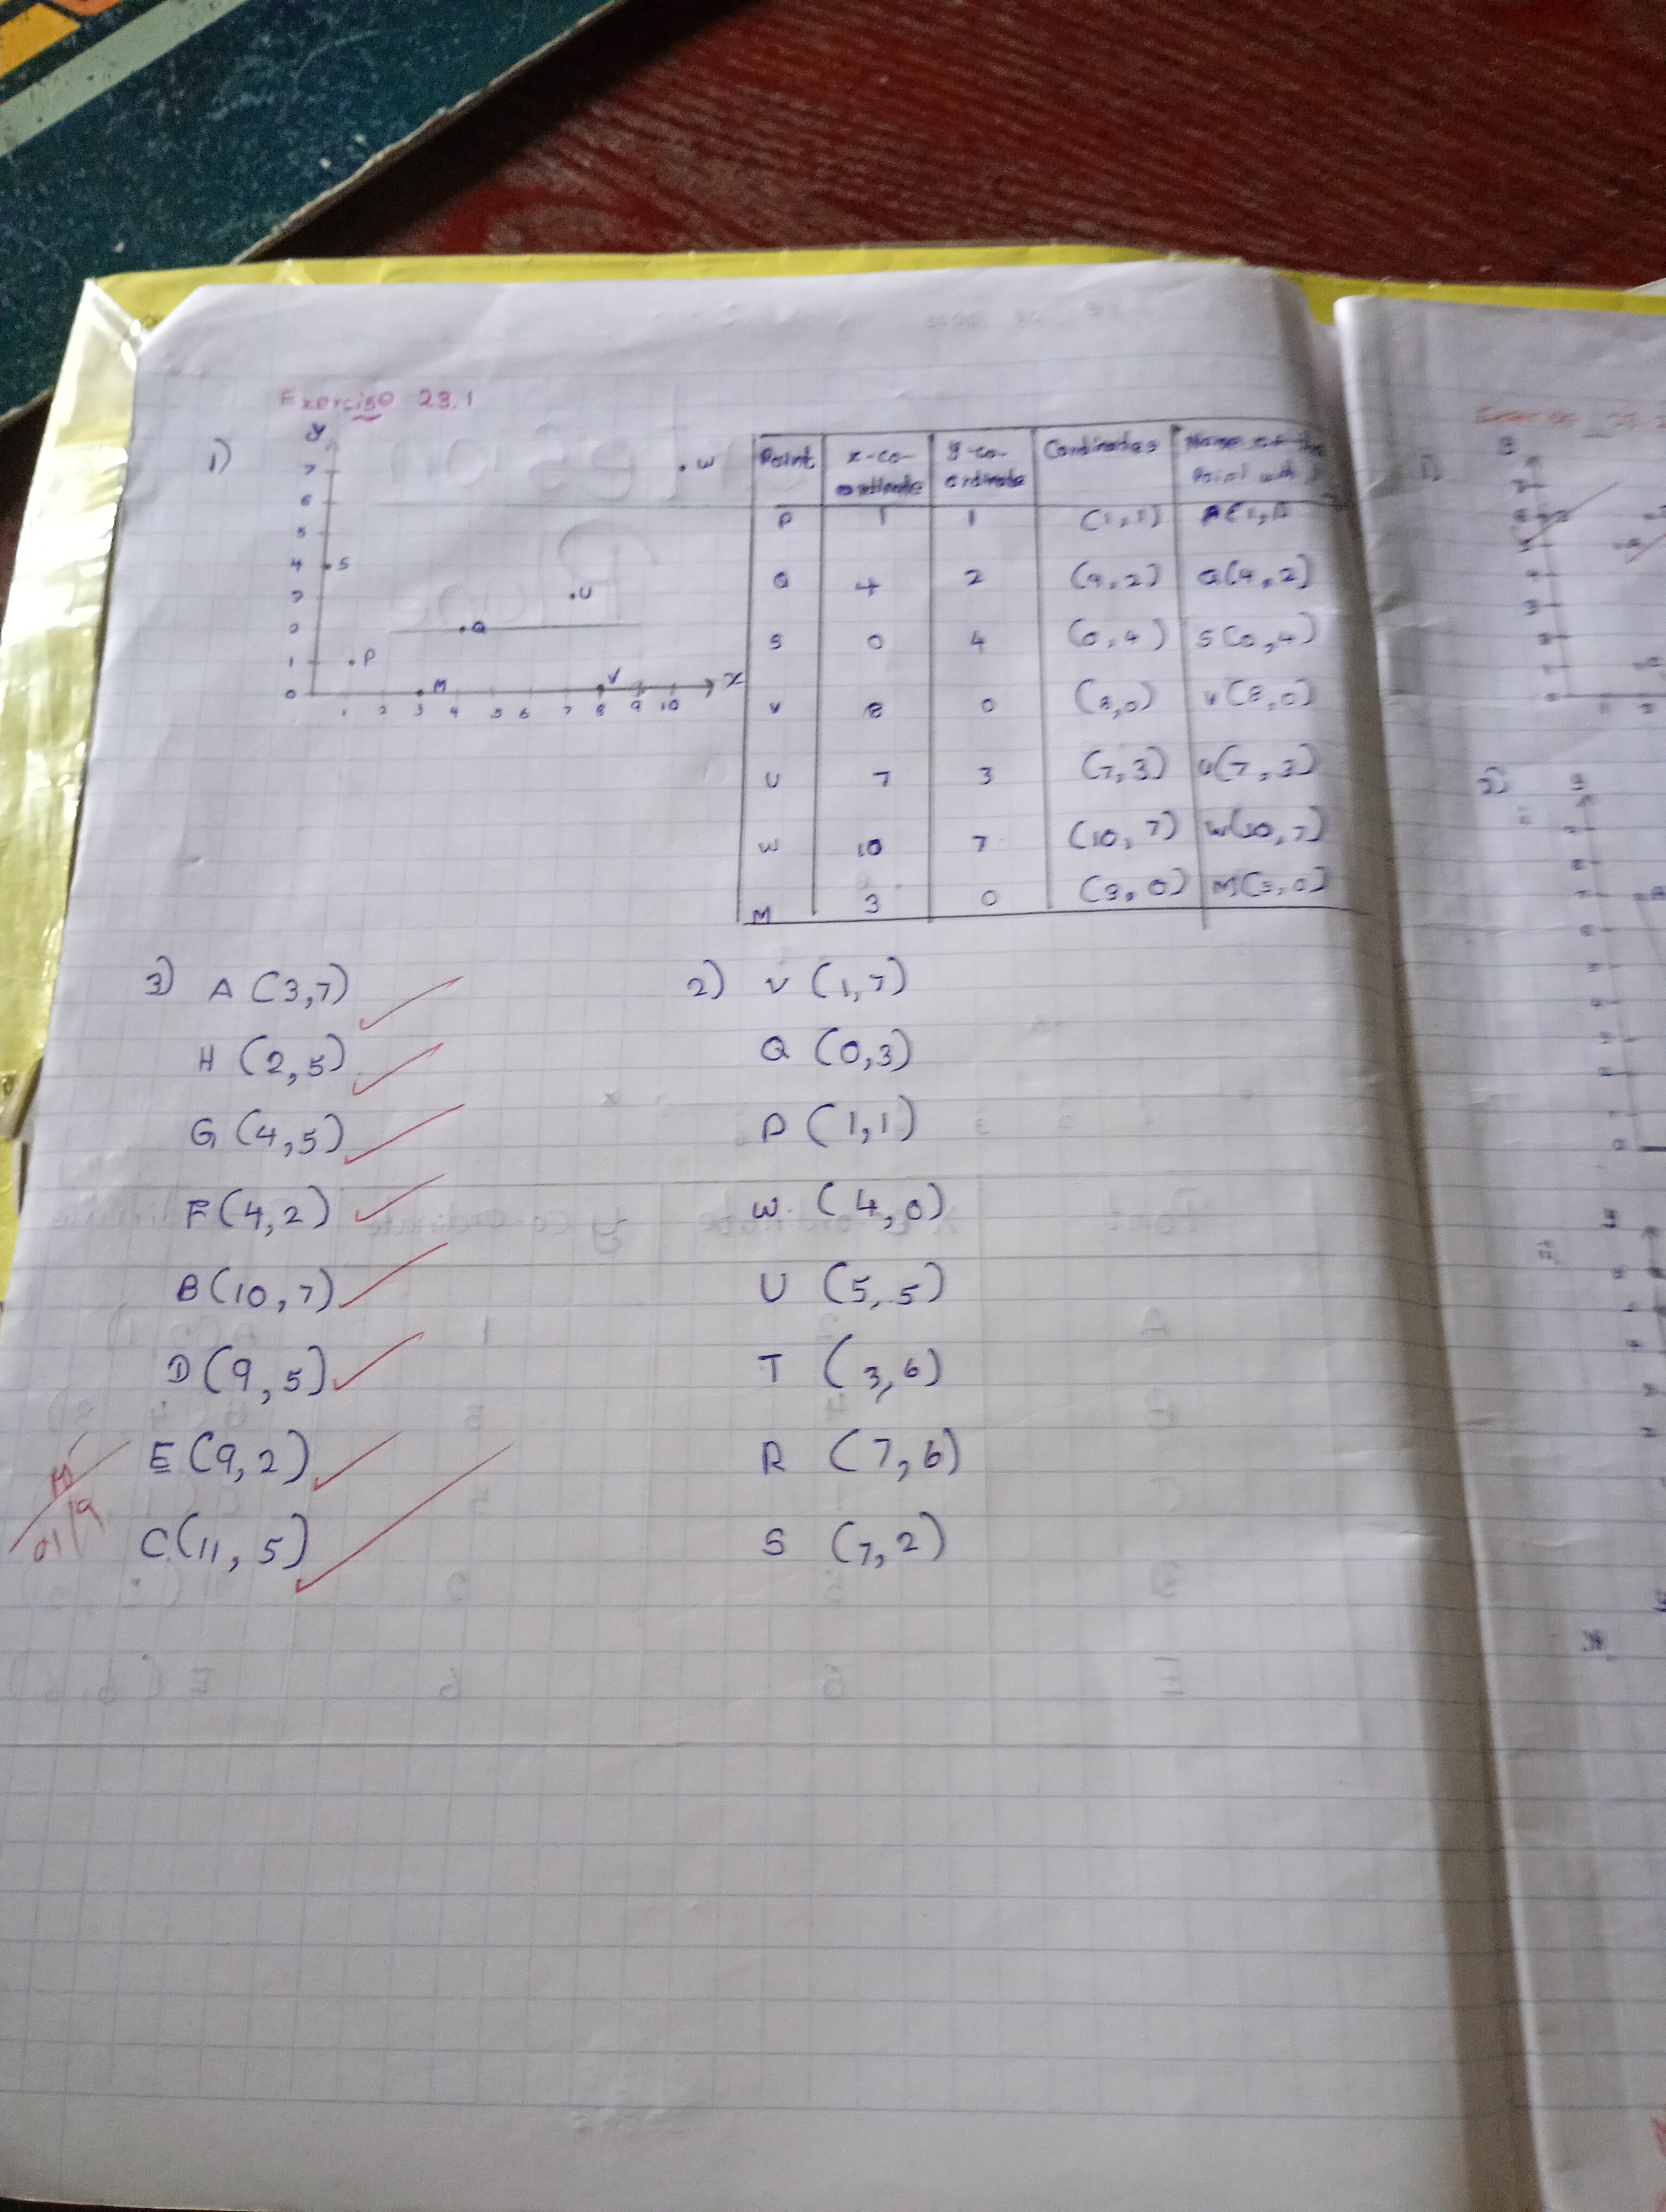 Exercise 23.1
1)
y
7
6
5
4
3
2
1
0
W
S
U
Q
P
M
V
x
1 2 3 4 5 6 7 8 9 10
Point x-co-ordinate y-co-ordinate Cordinates Name of the Point with
P 1 1 (1,1) P(1,1)
Q 4 2 (4,2) Q(4,2)
S 0 4 (0,4) S(0,4)
V 8 0 (8,0) V(8,0)
U 7 3 (7,3) U(7,3)
W 10 7 (10,7) W(10,7)
M 3 0 (3,0) M(3,0)
3) A (3,7)
H (2,5)
G (4,5)
F (4,2)
B (10,7)
D (9,5)
E (9,2)
C (11,5)
2) V (1,7)
Q (0,3)
P (1,1)
W (4,0)
U (5,5)
T (3,6)
R (7,6)
S (7,2)